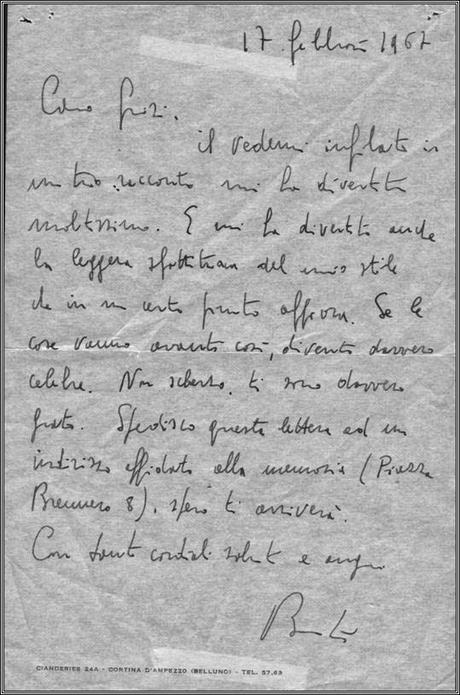 17 febbraio 1967
Caro Grazi.
il vedermi inflato in
un tuo racconto mi ha divertito
moltissimo. E mi ha divertito anche
la leggera sfottitura del mio stile
che in un certo punto affiora. Se le
cose vanno avanti così, divento davvero
celebre. Non scherzo, ti sono davvero
grato. Spedisco questa lettera ad un
indirizzo affidato alla memoria (Piazza
Brennero 8), spero ti arriverà.
Con tanti cordiali saluti e auguri
CIANDERIES 24A - CORTINA D'AMPEZZO (BELLUNO) - TEL. 57.63